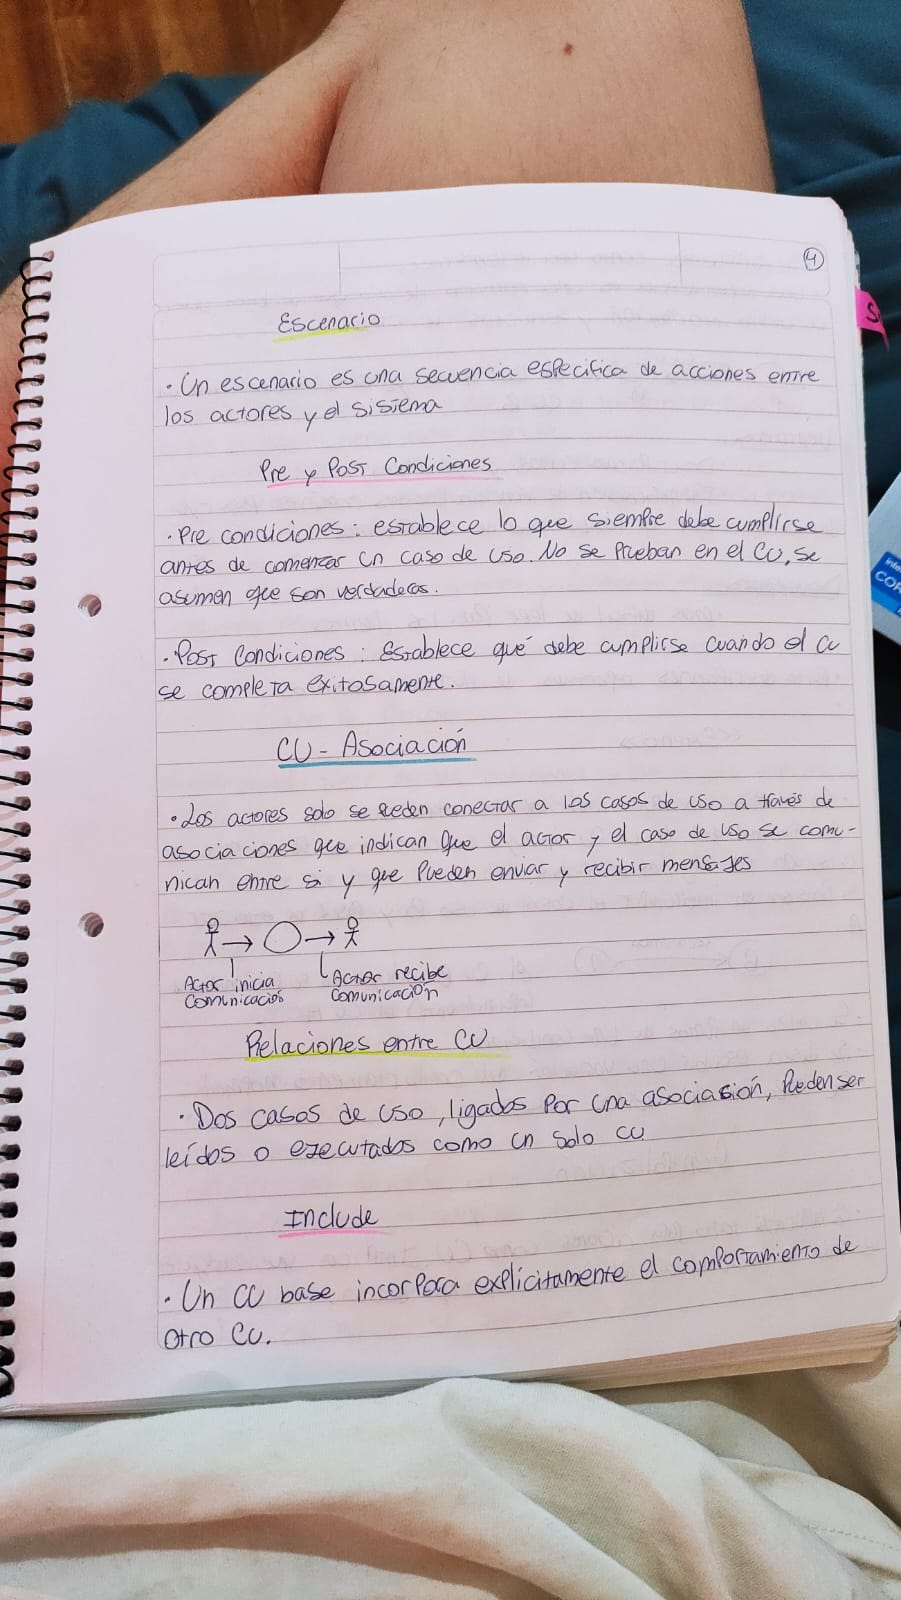 4
Escenario
• Un escenario es una secuencia especifica de acciones entre
los actores y el sistema
Pre y Post Condiciones
• Pre condiciones: establece lo que siempre debe cumplirse
antes de comenzar un caso de uso. No se prueban en el CU, se
asumen que son verdaderas.
• Post Condiciones: Establece qué debe cumplirse cuando el CU
se completa exitosamente.
CU - Asociación
• Los actores solo se peden conectar a los casos de uso a través de
asociaciones que indican que el actor y el caso de uso se comu-
nican entre si y que pueden enviar y recibir mensajes
Actor inicia
comunicación
Actor recibe
comunicación
Relaciones entre CU
• Dos casos de uso, ligados por una asociasión, pueden ser
leídos o ejecutados como un solo CU
Include
• Un CU base incorpora explícitamente el comportamiento de
otro CU.
S
inte
COR